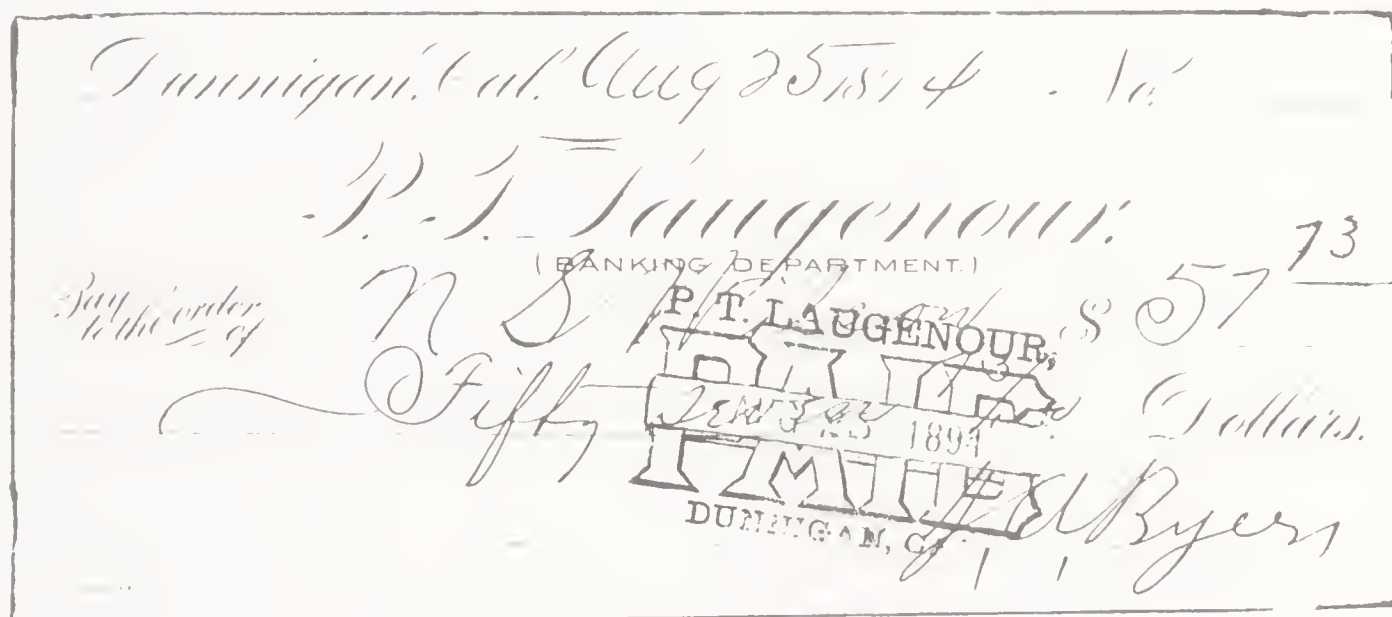 Dunnigan, Cal. Aug 25 1894 No.
P. T. Laugenour.
(BANKING DEPARTMENT.)
Pay to the order of N S $ 57 73
Fifty Dollars.
P. T. LAUGENOUR,
PAID
1894
DUNNIGAN, CA
Byers